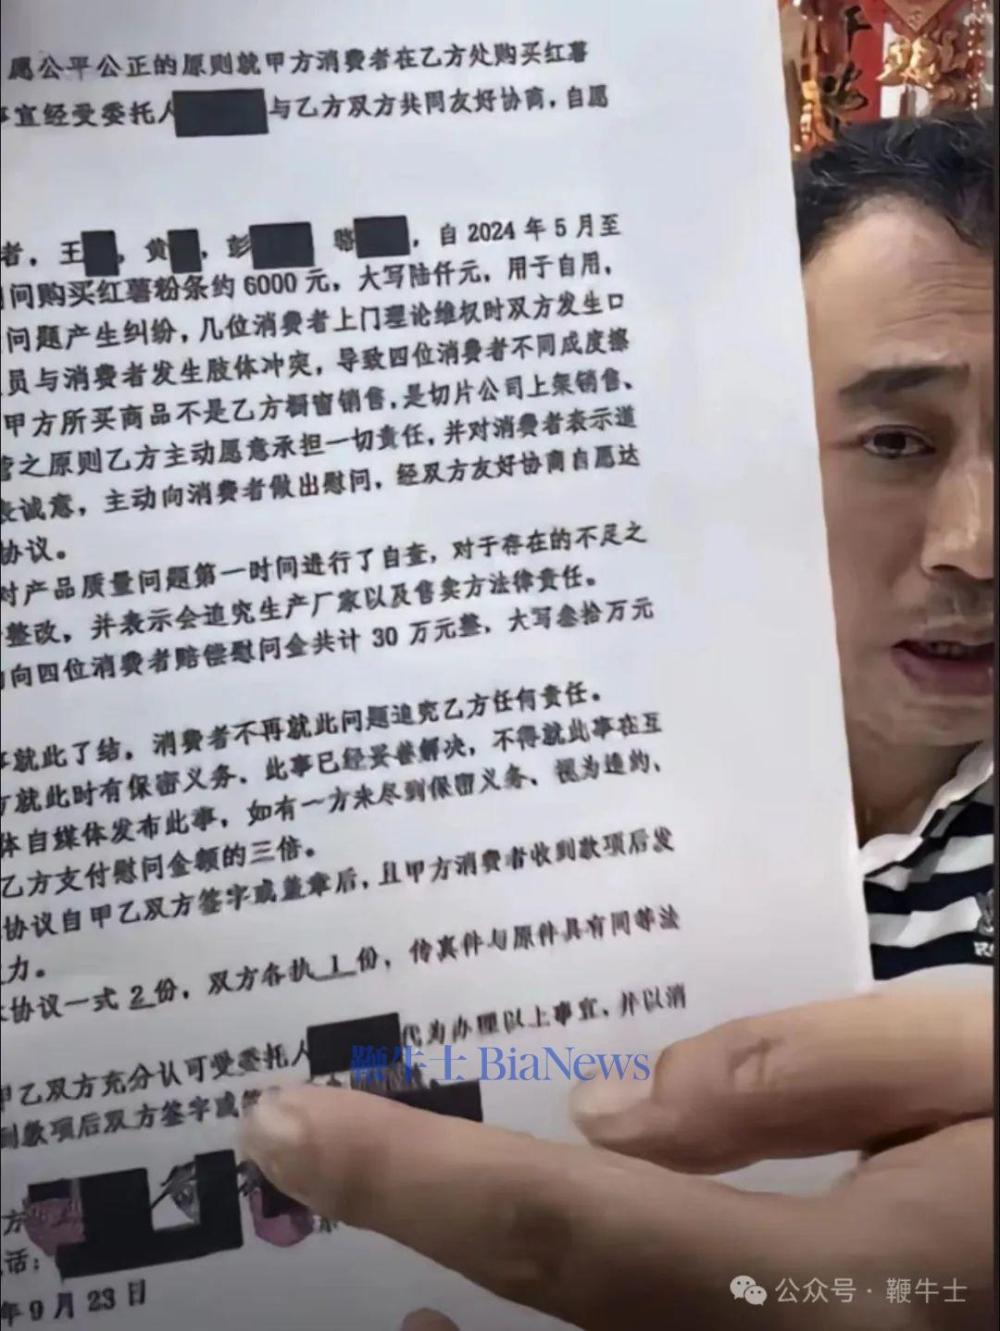 愿公平公正的原则就甲方消费者在乙方处购买红薯
事宜经受委托人 与乙方双方共同友好协商，自愿
者，王 ，黄 ，彭 骆 ，自 2024 年 5 月至
间购买红薯粉条约 6000 元，大写陆仟元，用于自用，
问题产生纠纷，几位消费者上门理论维权时双方发生口
员与消费者发生肢体冲突，导致四位消费者不同成度擦
甲方所买商品不是乙方橱窗销售，是切片公司上架销售、
营之原则乙方主动愿意承担一切责任，并对消费者表示道
表诚意，主动向消费者做出慰问，经双方友好协商自愿达
协议。
对产品质量问题第一时间进行了自查，对于存在的不足之
整改，并表示会追究生产厂家以及售卖方法律责任。
向四位消费者赔偿慰问金共计 30 万元整，大写叁拾万元
事就此了结，消费者不再就此问题追究乙方任何责任。
方就此时有保密义务、此事已经妥善解决，不得就此事在互
体自媒体发布此事，如有一方未尽到保密义务、视为违约、
乙方支付慰问金额的三倍。
协议自甲乙双方签字或盖章后，且甲方消费者收到款项后发
力。
协议一式 2 份，双方各执 1 份，传真件与原件具有同等法
甲乙双方充分认可受委托人 代为办理以上事宜，并以消
到款项后双方签字或
方
话：
年 9 月 23 日
鞭牛士 BiaNews
公众号 · 鞭牛士